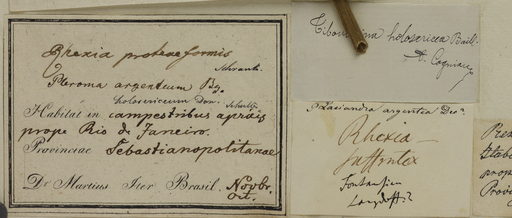 Rhexia proteaeformis
Schrank.
Pleroma argenteum
holosericeum Don.
Habitat in campestribus apricis
prope Rio de Janeiro.
Provinciae Sebastianopolitanae
Dr Martius Iter Brasil. Novbr.
Oct.
Tibouchina holosericea Baill.
A. Cogniaux
Lasiandra argentea Dec.
Rhexia
suffrutex
Langsdorff